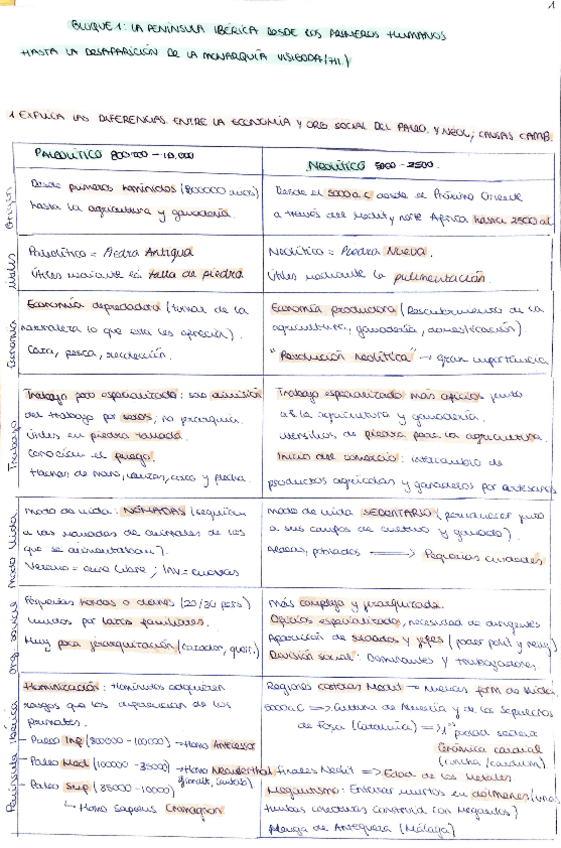 1
BLOQUE 1: LA PENÍNSULA IBÉRICA DESDE LOS PRIMEROS HUMANOS
HASTA LA DESAPARICIÓN DE LA MONARQUÍA VISIGODA (711)
1. EXPLICA LAS DIFERENCIAS ENTRE LA ECONOMÍA Y ORG SOCIAL DEL PALEO. Y NEOL; CAUSAS CAMB.
PALEOLÍTICO 800'000 - 10.000
NEOLÍTICO 5000 - 2500.
Origen
Desde primeros homínidos (800000 años)
hasta la agricultura y ganadería.
Desde el 5000 a.C desde el Próximo Oriente
a través del Medit y norte África hasta 2500 a.C
Útiles
Paleolítico = Piedra Antigua
Útiles mediante la talla de piedra
Neolítico = Piedra Nueva.
Útiles mediante la pulimentación.
Economía
Economía depredadora (tomar de la
naturaleza lo que esta les ofrecía).
Caza, pesca, recolección.
Economía productora (Descubrimiento de la
agricultura, ganadería, domesticación)
"Revolución neolítica" → gran importancia
Trabajo
Trabajo poco especializado: solo división
del trabajo por sexos; no jerarquía.
Útiles en piedra tallada.
Conocían el fuego.
Hachas de mano, lanzas, arco y flecha.
Trabajo especializado más oficios junto
a la agricultura y ganadería.
Utensilios de piedra para la agricultura.
Inicio del comercio: intercambio de
productos agrícolas y ganaderos por artesanos
Modo Vida
Modo de vida: NÓMADAS (seguían
a las manadas de animales de los
que se alimentaban).
Verano = aire libre; INV = cuevas
Modo de vida SEDENTARIO (permanecer junto
a sus campos de cultivo y ganado).
Aldeas, poblados ⟹ Pequeñas ciudades
Org. social
Pequeñas hordas o clanes (20/30 pers)
unidos por lazos familiares.
Muy poca jerarquización (cazador, guerr.)
Más compleja y jerarquizada.
Oficios especializados, necesidad de dirigentes
Aparición de y jefes (poder polít y relig)
División social: Dominantes y trabajadores
Península Ibérica
Hominización: Homínidos adquieren
rasgos que los diferencian de los
primates.
- Paleo Inf (800000 - 100000) → Homo Antecessor
- Paleo Med (100000 - 35000) → Homo Neanderthal
- Paleo Sup (35000 - 10000)
↳ Homo Sapiens Cromagnon
Regiones costeras Medit → nuevas form de vida.
5000 a.C ⟹ Cultura de Almería y de los Sepulcros
de Fosa (Cataluña) ⟹
Cerámica cardial
(concha / cardium)
Finales Neolít ⟹ Edad de los Metales
Megalitismo: Enterrar muertos en dólmenes (unas
tumbas colectivas construid con megalitos)
Menga de Antequera (Málaga)